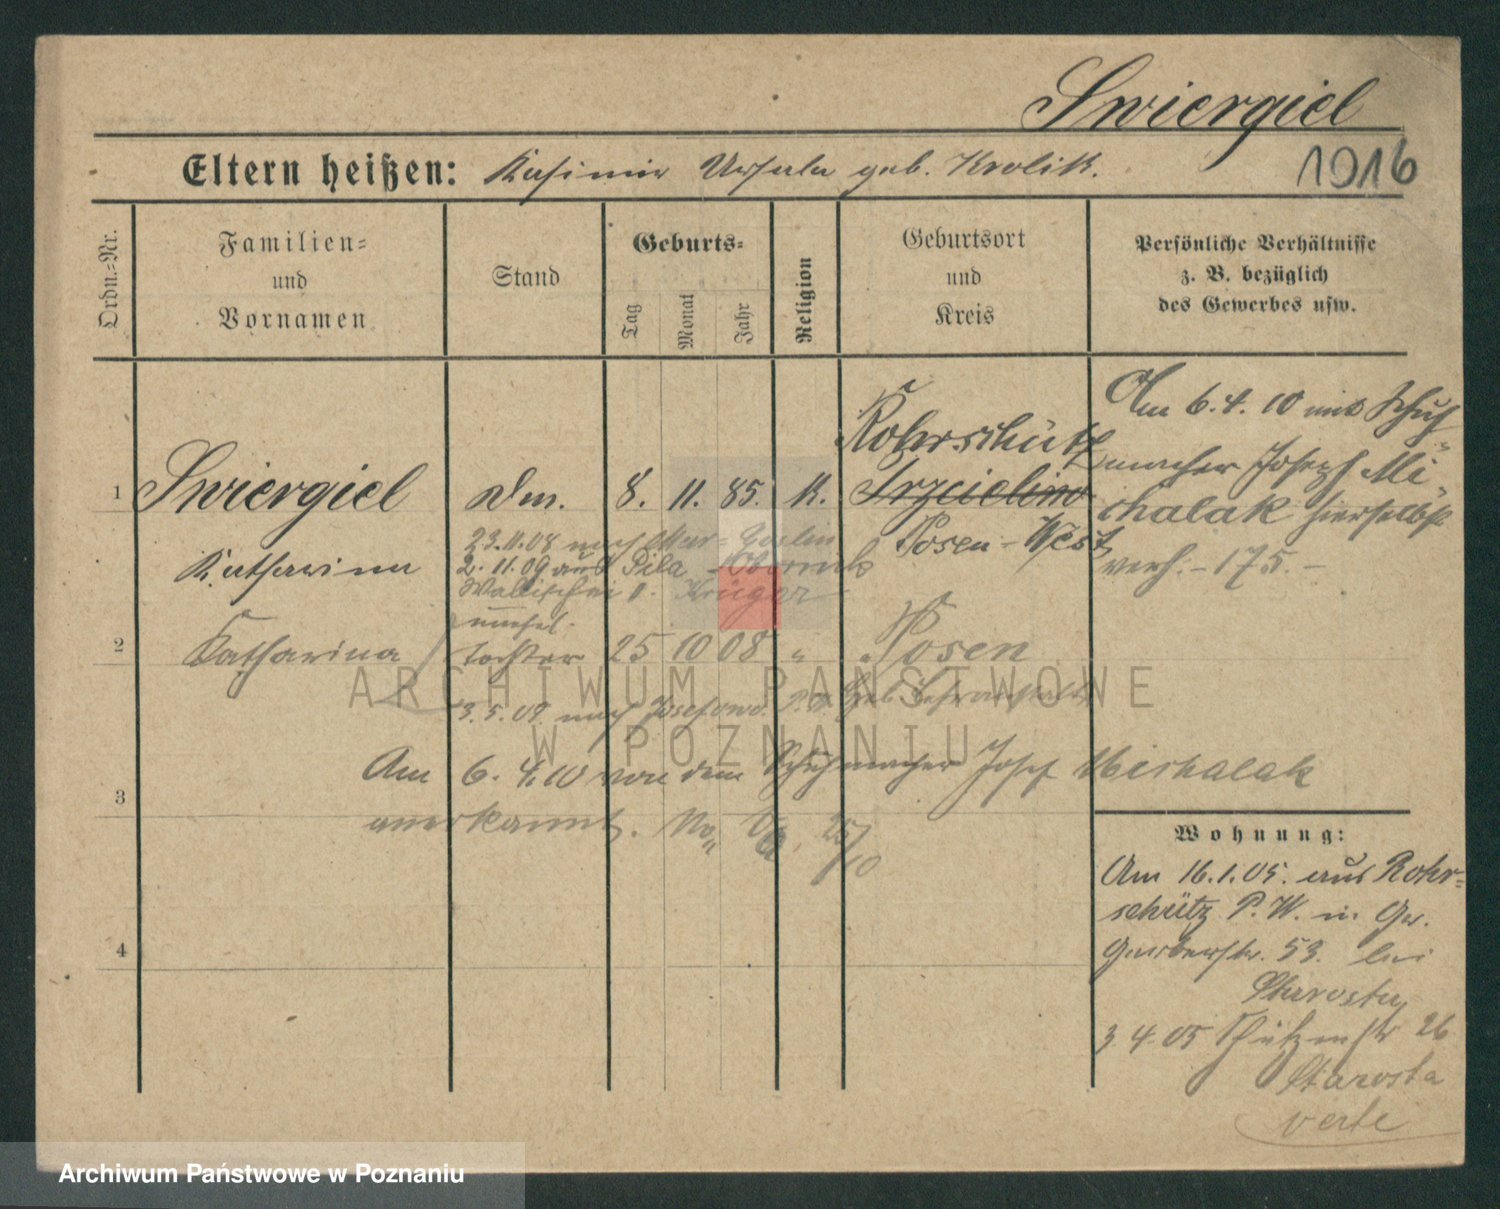 Swiergiel
Eltern heißen: Kasimir Ursula geb. Krolik.
1916
Ordn.=Nr.
Familien=
und
Vornamen
Stand
Geburts=
Tag
Monat
Jahr
Religion
Geburtsort
und
Kreis
Persönliche Verhältnisse
z. B. bezüglich
des Gewerbes usw.
1 Swiergiel Dm. 8. 11. 85. K.
Rohrschütz
Trzcielino
Posen-West
Katharina
23.11.08 nach Mur=Goslin
2. 11. 09 aus Pila Obornik
Wallischei Krüger
Am 6. 4. 10 mit Schuh=
macher Joseph Mi=
chalak hierselbst
verh. - 175. -
unehel.
2 Katharina Tochter 25 10 08 " Posen
3. 5. 09 nach Josefowo
Am 6. 4. 10 von dem Schuhmacher Josef Michalak
3
anerkannt. 25/10
4
Wohnung:
Am 16.1.05. aus Rohr=
schütz P. W. in Gr.
Gerberstr. 53. bei
Starosta
3 4 05 Schützenstr 26
Starosta
verte
ARCHIWUM PAŃSTWOWE
W POZNANIU
Archiwum Państwowe w Poznaniu